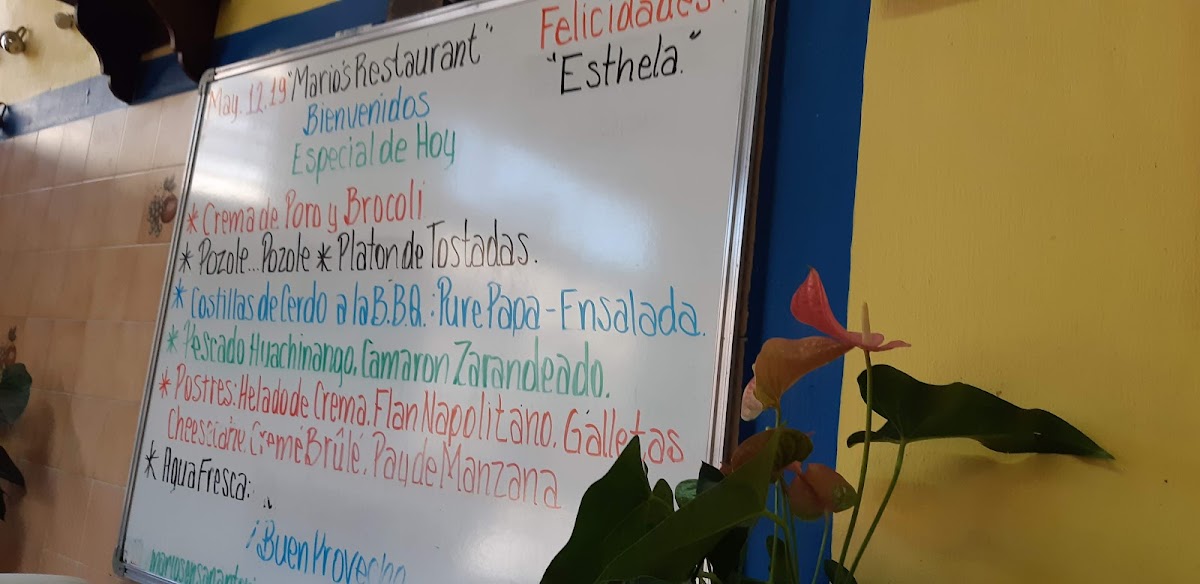 May. 12, 19 "Mario's Restaurant"
Felicidades!
"Esthela."
Bienvenidos
Especial de Hoy
* Crema de Poro y Brocoli
* Pozole...Pozole * Platon de Tostadas.
* Costillas de Cerdo a la B.B.Q.: Pure Papa - Ensalada.
* Pescado Huachinango, Camaron Zarandeado.
* Postres: Helado de Crema, Flan Napolitano, Galletas
Cremé Brûlé, Pay de Manzana
* Agua Fresca:
¡Buen Provecho